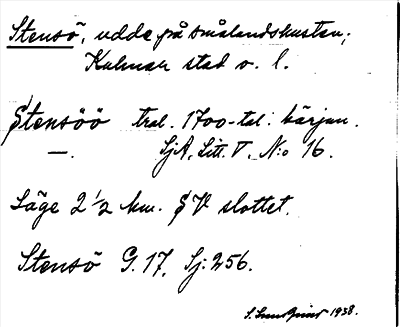 Stensö, udde på Smålandskusten;
Kalmar stad o. l.
Stensöö tral. 1700-tal: början.
—. SjA, Litt. V, N:o 16.
Läge 2 1/2 km. SV slottet.
Stensö G. 17, Sj: 256.
S. 1938.